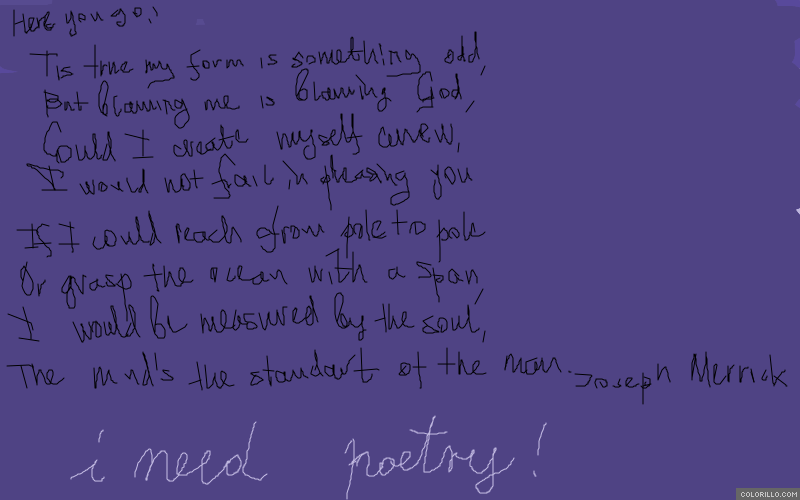 Here you go,!
Tis true my form is something odd,
But blaming me is blaming God,
Could I create myself anew,
I would not fail in pleasing you
If I could reach from pole to pole
Or grasp the ocean with a span,
I would be measured by the soul,
The mind's the standart of the man. Joseph Merrick
i need poetry!
COLORILLO.COM